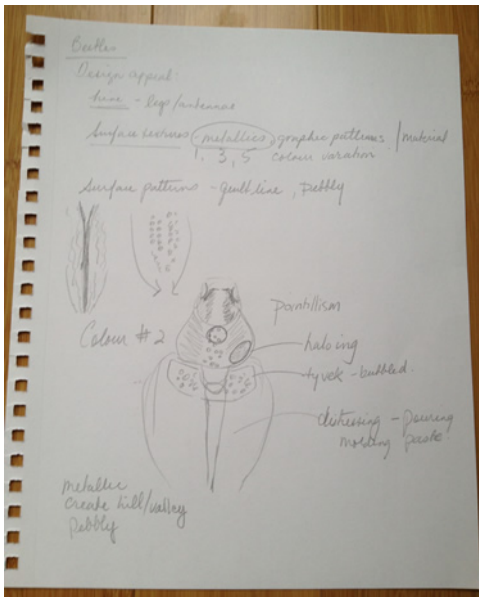 Beetles
Design appeal:
line - legs/antennae
Surface textures - metallics, graphic patterns / material
1, 3, 5 colour variation
Surface patterns - line, pebbly
pointillism
Colour # 2
haloing
tyvek - bubbled.
distressing - pouring
molding paste.
metallic
create hill/valley
pebbly